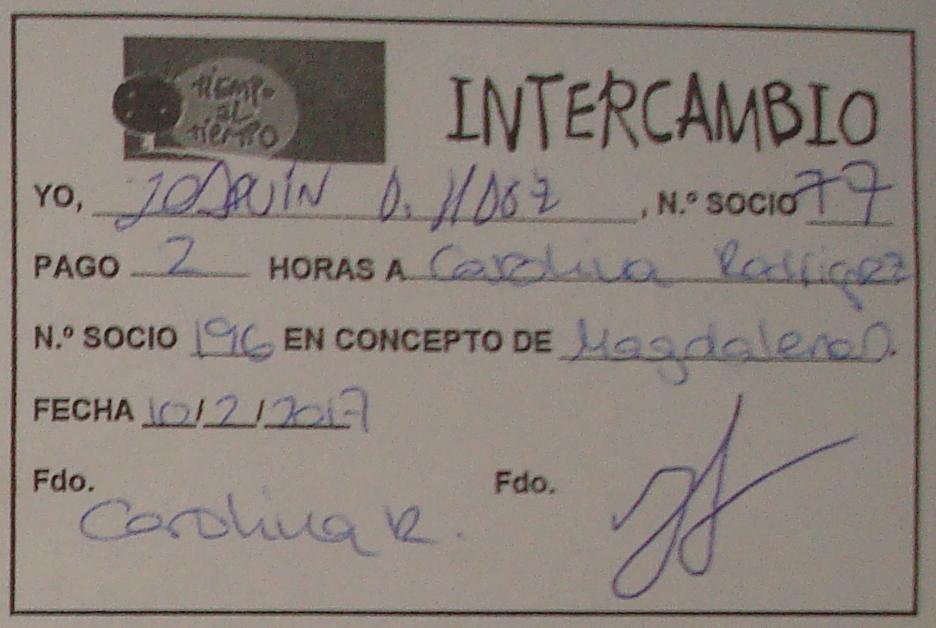 tiempo
al
tiempo
INTERCAMBIO
YO, JOAQUÍN D. , N.º SOCIO 77
PAGO 2 HORAS A Carolina Rodriguez
N.º SOCIO 196 EN CONCEPTO DE Magdalenas.
FECHA 10/2/2017
Fdo. Fdo.
Carolina R.